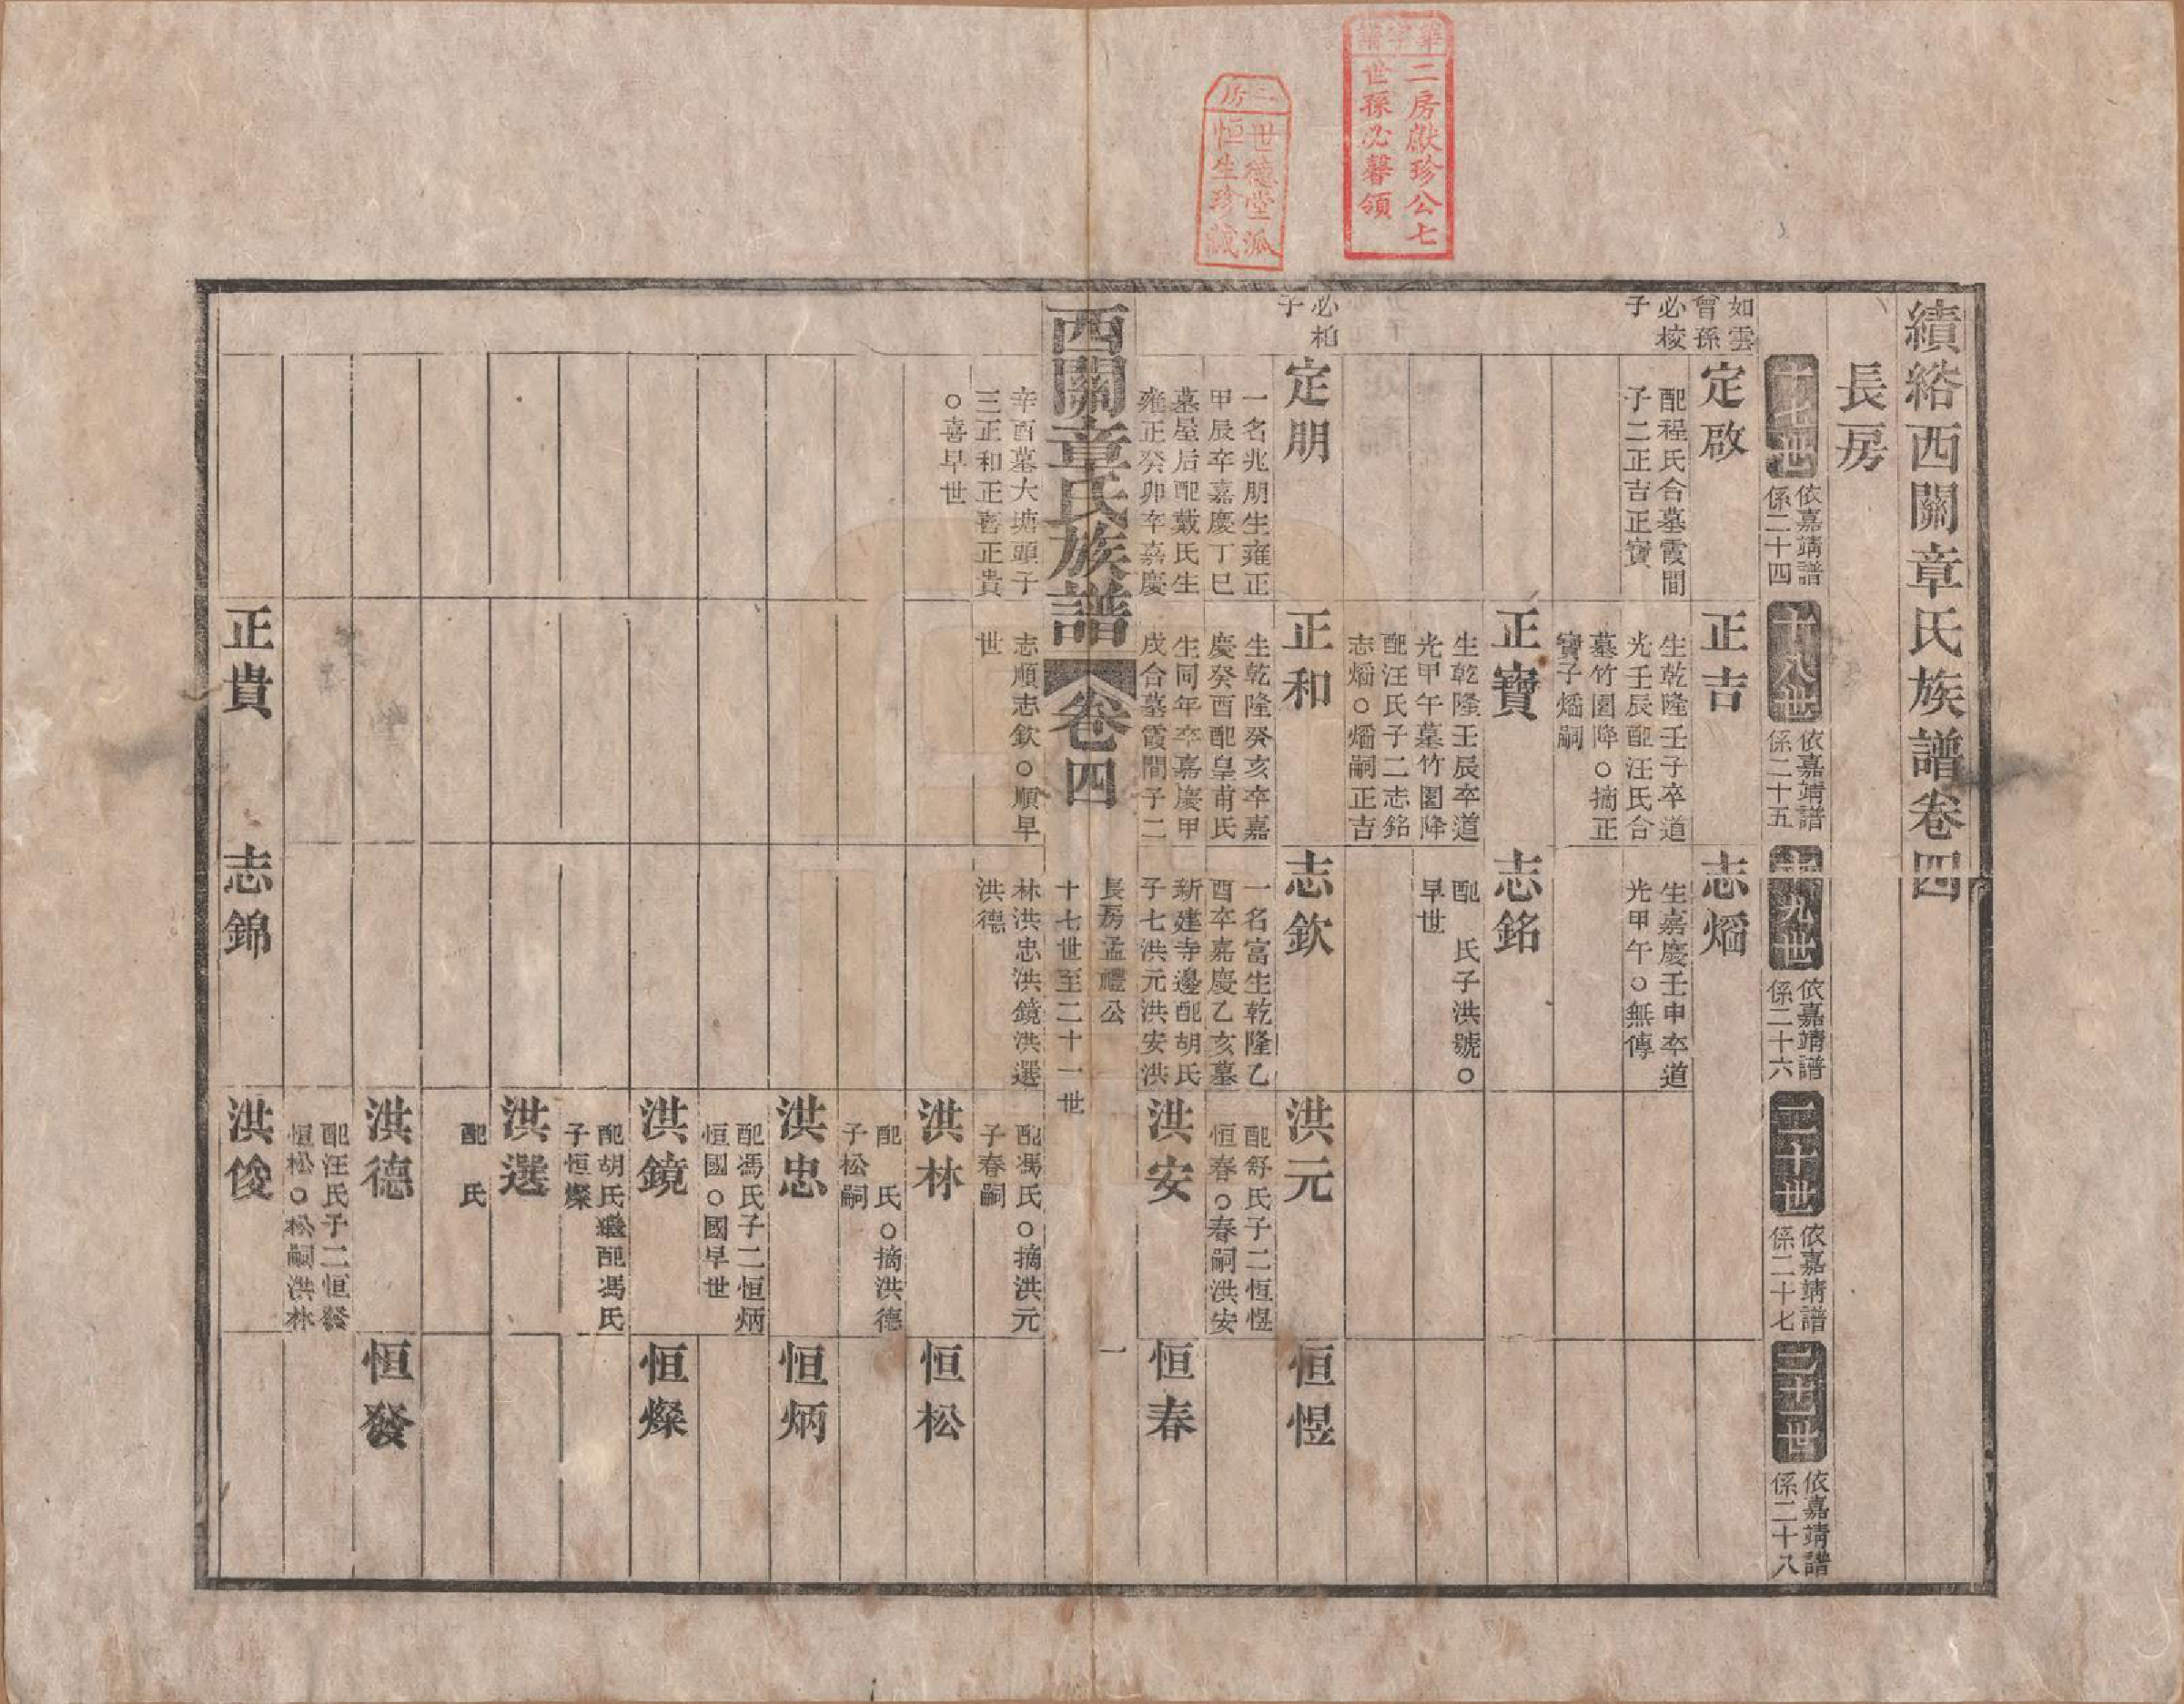 二房獻珍公七
世孫必馨領
二房
世德堂派
恒生珍藏
績谿西關章氏族譜卷四
長房
十七世
依嘉靖譜
係二十四
十八世
依嘉靖譜
係二十五
十九世
依嘉靖譜
係二十六
二十世
依嘉靖譜
係二十七
二十一世
依嘉靖譜
係二十八
如雲
曾孫
必棱
子
定啟
配程氏合墓霞間
子二正吉正寶
正吉
生乾隆壬子卒道
光壬辰配汪氏合
墓竹園降○摘正
寶子熖嗣
志熖
生嘉慶壬申卒道
光甲午○無傳
正寶
生乾隆壬辰卒道
光甲午墓竹園降
配汪氏子二志銘
志熖○熖嗣正吉
志銘
配 氏子洪號○
早世
必柏
子
定朋
一名兆朋生雍正
甲辰卒嘉慶丁巳
墓屋后配戴氏生
雍正癸卯卒嘉慶
辛酉墓大塘頭子
三正和正喜正貴
○喜早世
正和
生乾隆癸亥卒嘉
慶癸酉配皇甫氏
生同年卒嘉慶甲
戌合墓霞間子二
志順志欽○順早
世
志欽
一名富生乾隆乙
酉卒嘉慶乙亥墓
新建寺邊配胡氏
子七洪元洪安洪
林洪忠洪鏡洪選
洪德
洪元
配舒氏子二恒煜
恒春○春嗣洪安
恒煜
洪安
配馮氏○摘洪元
子春嗣
恒春
西關章氏族譜
卷四
長房孟禮公
十七世至二十一世
一
洪林
配 氏○摘洪德
子松嗣
恒松
洪忠
配馮氏子二恒炳
恒國○國早世
恒炳
洪鏡
配胡氏繼配馮氏
子恒燦
恒燦
洪選
配 氏
洪德
配汪氏子二恒發
恒松○松嗣洪林
恒發
正貴
志錦
洪俊